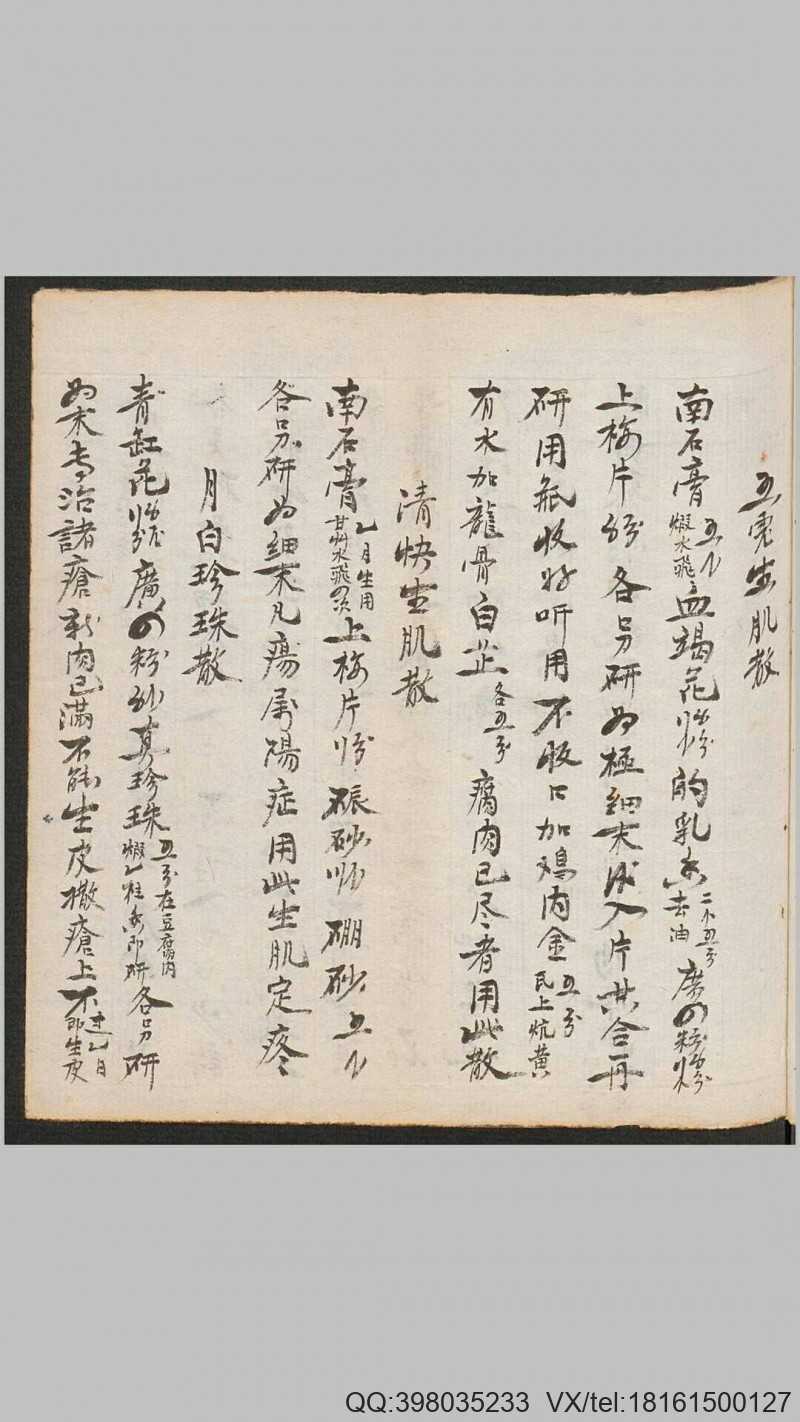 五灵生肌散
南石膏 五 煅水飛 血竭花 的乳香 去油 二 五分 廣 粉
上梅片 各另研為極細末 入片共合再
研用瓶收好听用不收口加鸡内金 五分 瓦上炕黄
有水加龍骨白芷 各五分 腐肉已尽者用此散
清快生肌散
南石膏 乙月生用 甘草水飛 次 上梅片 硃砂 硼砂五
各另研為細末凡瘍屬陽症用此生肌定疼
月白珍珠散
青缸花 廣 粉 真珍珠 五分在豆腐内 煅乙柱香即研 各另研
為末专治諸瘡新肉已滿不能生皮撒瘡上不 過乙日 即生皮
QQ:398035233 VX/tel:18161500127